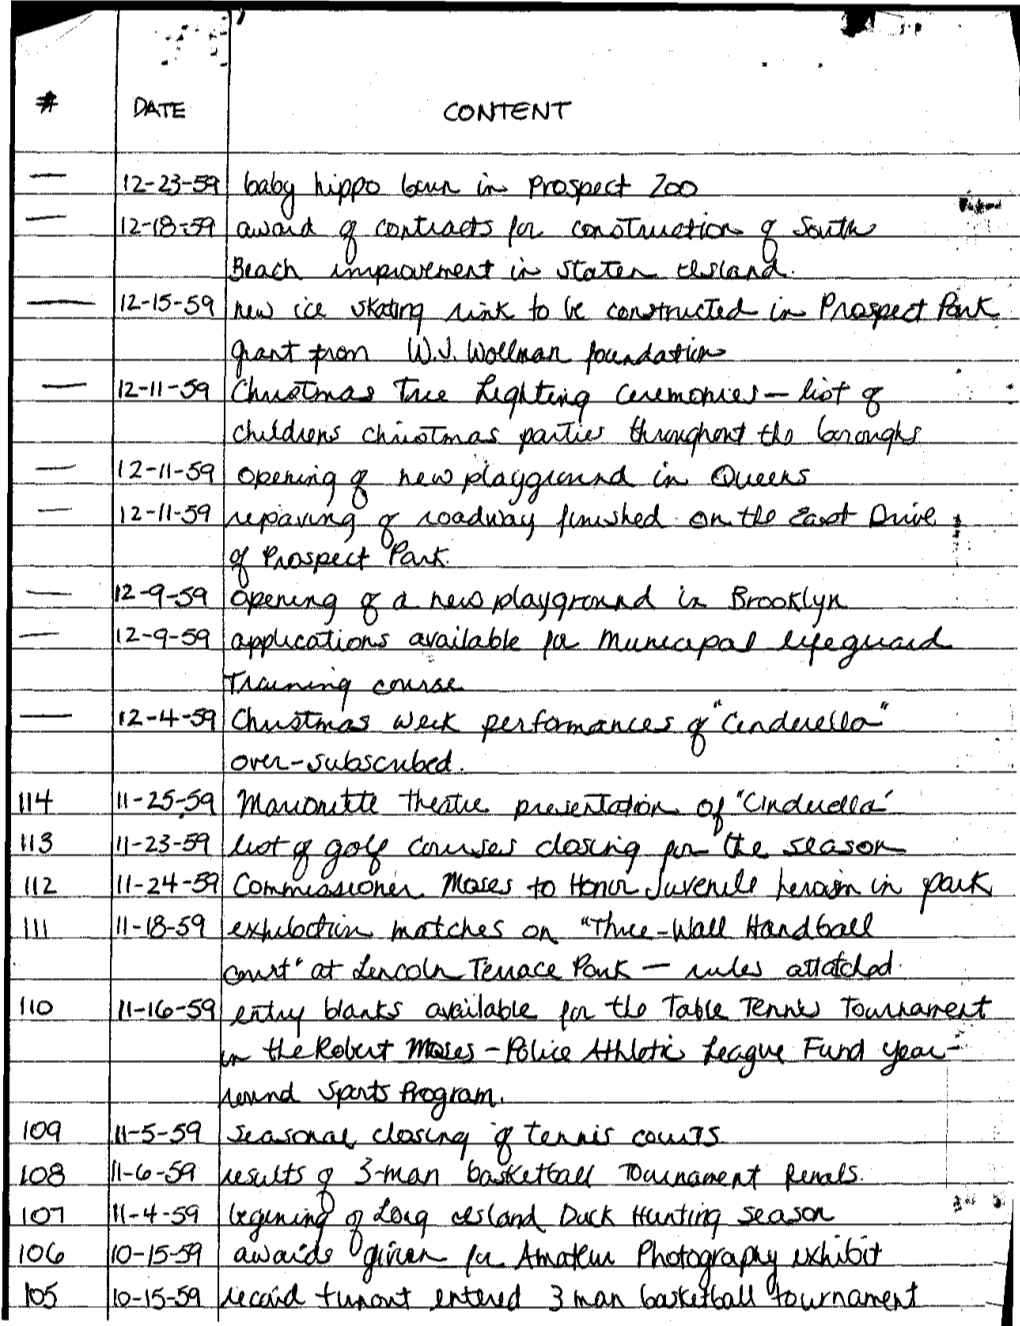 # DATE CONTENT
— 12-23-59 baby hippo born in Prospect Zoo
— 12-18-59 award of contracts for construction of South
Beach improvement in Staten Island.
— 12-15-59 new ice skating rink to be constructed in Prospect Park
grant from W.J. Wollman foundation
— 12-11-59 Christmas Tree Lighting Ceremonies — list of
childrens christmas parties throughout the boroughs
— 12-11-59 opening of new playground in Queens
— 12-11-59 repaving of roadway finished on the East Drive
of Prospect Park.
— 12-9-59 opening of a new playground in Brooklyn
— 12-9-59 applications available for Municipal lifeguard
Training course
— 12-4-59 Christmas week performances of "Cinderella"
over-subscribed.
114 11-25-59 Marionette theatre presentation of "Cinderella"
113 11-23-59 list of golf courses closing for the season
112 11-24-59 Commissioner Moses to Honor Juvenile heroism in park
111 11-18-59 exhibition matches on "Three-Wall Handball
court" at Lincoln Terrace Park — rules attatched.
110 11-16-59 entry blanks available for the Table Tennis Tournament
in the Robert Moses - Police Athletic League Fund year-
round Sports Program.
109 11-5-59 seasonal closing of tennis courts
108 11-6-59 results of 3-man basketball Tournament finals.
107 11-4-59 begining of Long Island Duck Hunting season
106 10-15-59 awards given for Amateur Photography exhibit
105 10-15-59 record turnout entered 3 man basketball tournament